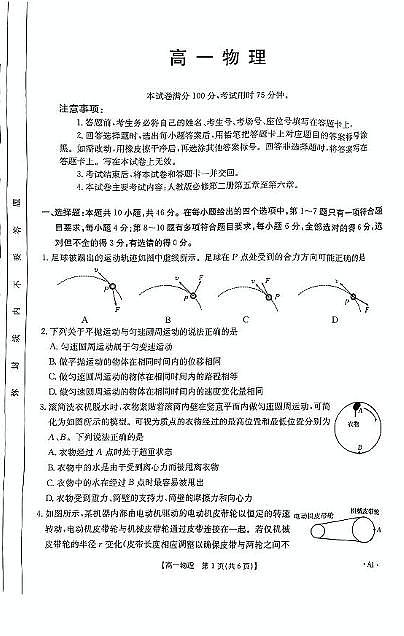 高一物理
本试卷满分100分,考试用时75分钟。
注意事项:
1.答题前,考生务必将自己的姓名、考生号、考场号、座位号填写在答题卡上。
2.回答选择题时,选出每小题答案后,用铅笔把答题卡上对应题目的答案标号涂
黑。如需改动,用橡皮擦干净后,再选涂其他答案标号。回答非选择题时,将答案写在
答题卡上。写在本试卷上无效。
3.考试结束后,将本试卷和答题卡一并交回。
4.本试卷主要考试内容:人教版必修第二册第五章至第六章。
一、选择题:本题共10小题,共46分。在每小题给出的四个选项中,第1~7题只有一项符合题
目要求,每小题4分;第8~10题有多项符合题目要求,每小题6分,全部选对的得6分,选
对但不全的得3分,有选错的得0分。
1.足球被踢出的运动轨迹如图中虚线所示。足球在P点处受到的合力方向可能正确的是
v P F
v F P
v P F
v F P
A B C D
2.下列关于平抛运动与匀速圆周运动的说法正确的是
A.匀速圆周运动属于匀变速运动
B.做平抛运动的物体在相同时间内的位移相同
C.做匀速圆周运动的物体在相同时间内的路程相等
D.做匀速圆周运动的物体在相同时间内的速度变化量相同
3.滚筒洗衣机脱水时,衣物紧贴着滚筒内壁在竖直平面内做匀速圆周运动,可简
化为如图所示的模型。可视为质点的衣物经过的最高位置和最低位置分别为
A、B。下列说法正确的是
A.衣物经过A点时处于超重状态
B.衣物中的水是由于受到离心力而被甩离衣物
C.衣物中的水在经过B点时最容易被甩出
D.衣物受到重力、筒壁的支持力、筒壁的摩擦力和向心力
A
衣物
B
4.如图所示,某机器内部由电动机驱动的电动机皮带轮以恒定的转速
转动,电动机皮带轮与机械皮带轮通过皮带连接在一起。若仅机械
皮带轮的半径r变化(皮带长度相应调整以确保皮带与两轮之间不
电动机皮带轮
机械皮带轮
A
【高一物理 第1页(共6页)】
·A1·
题
答
要
不
内
线
封
密